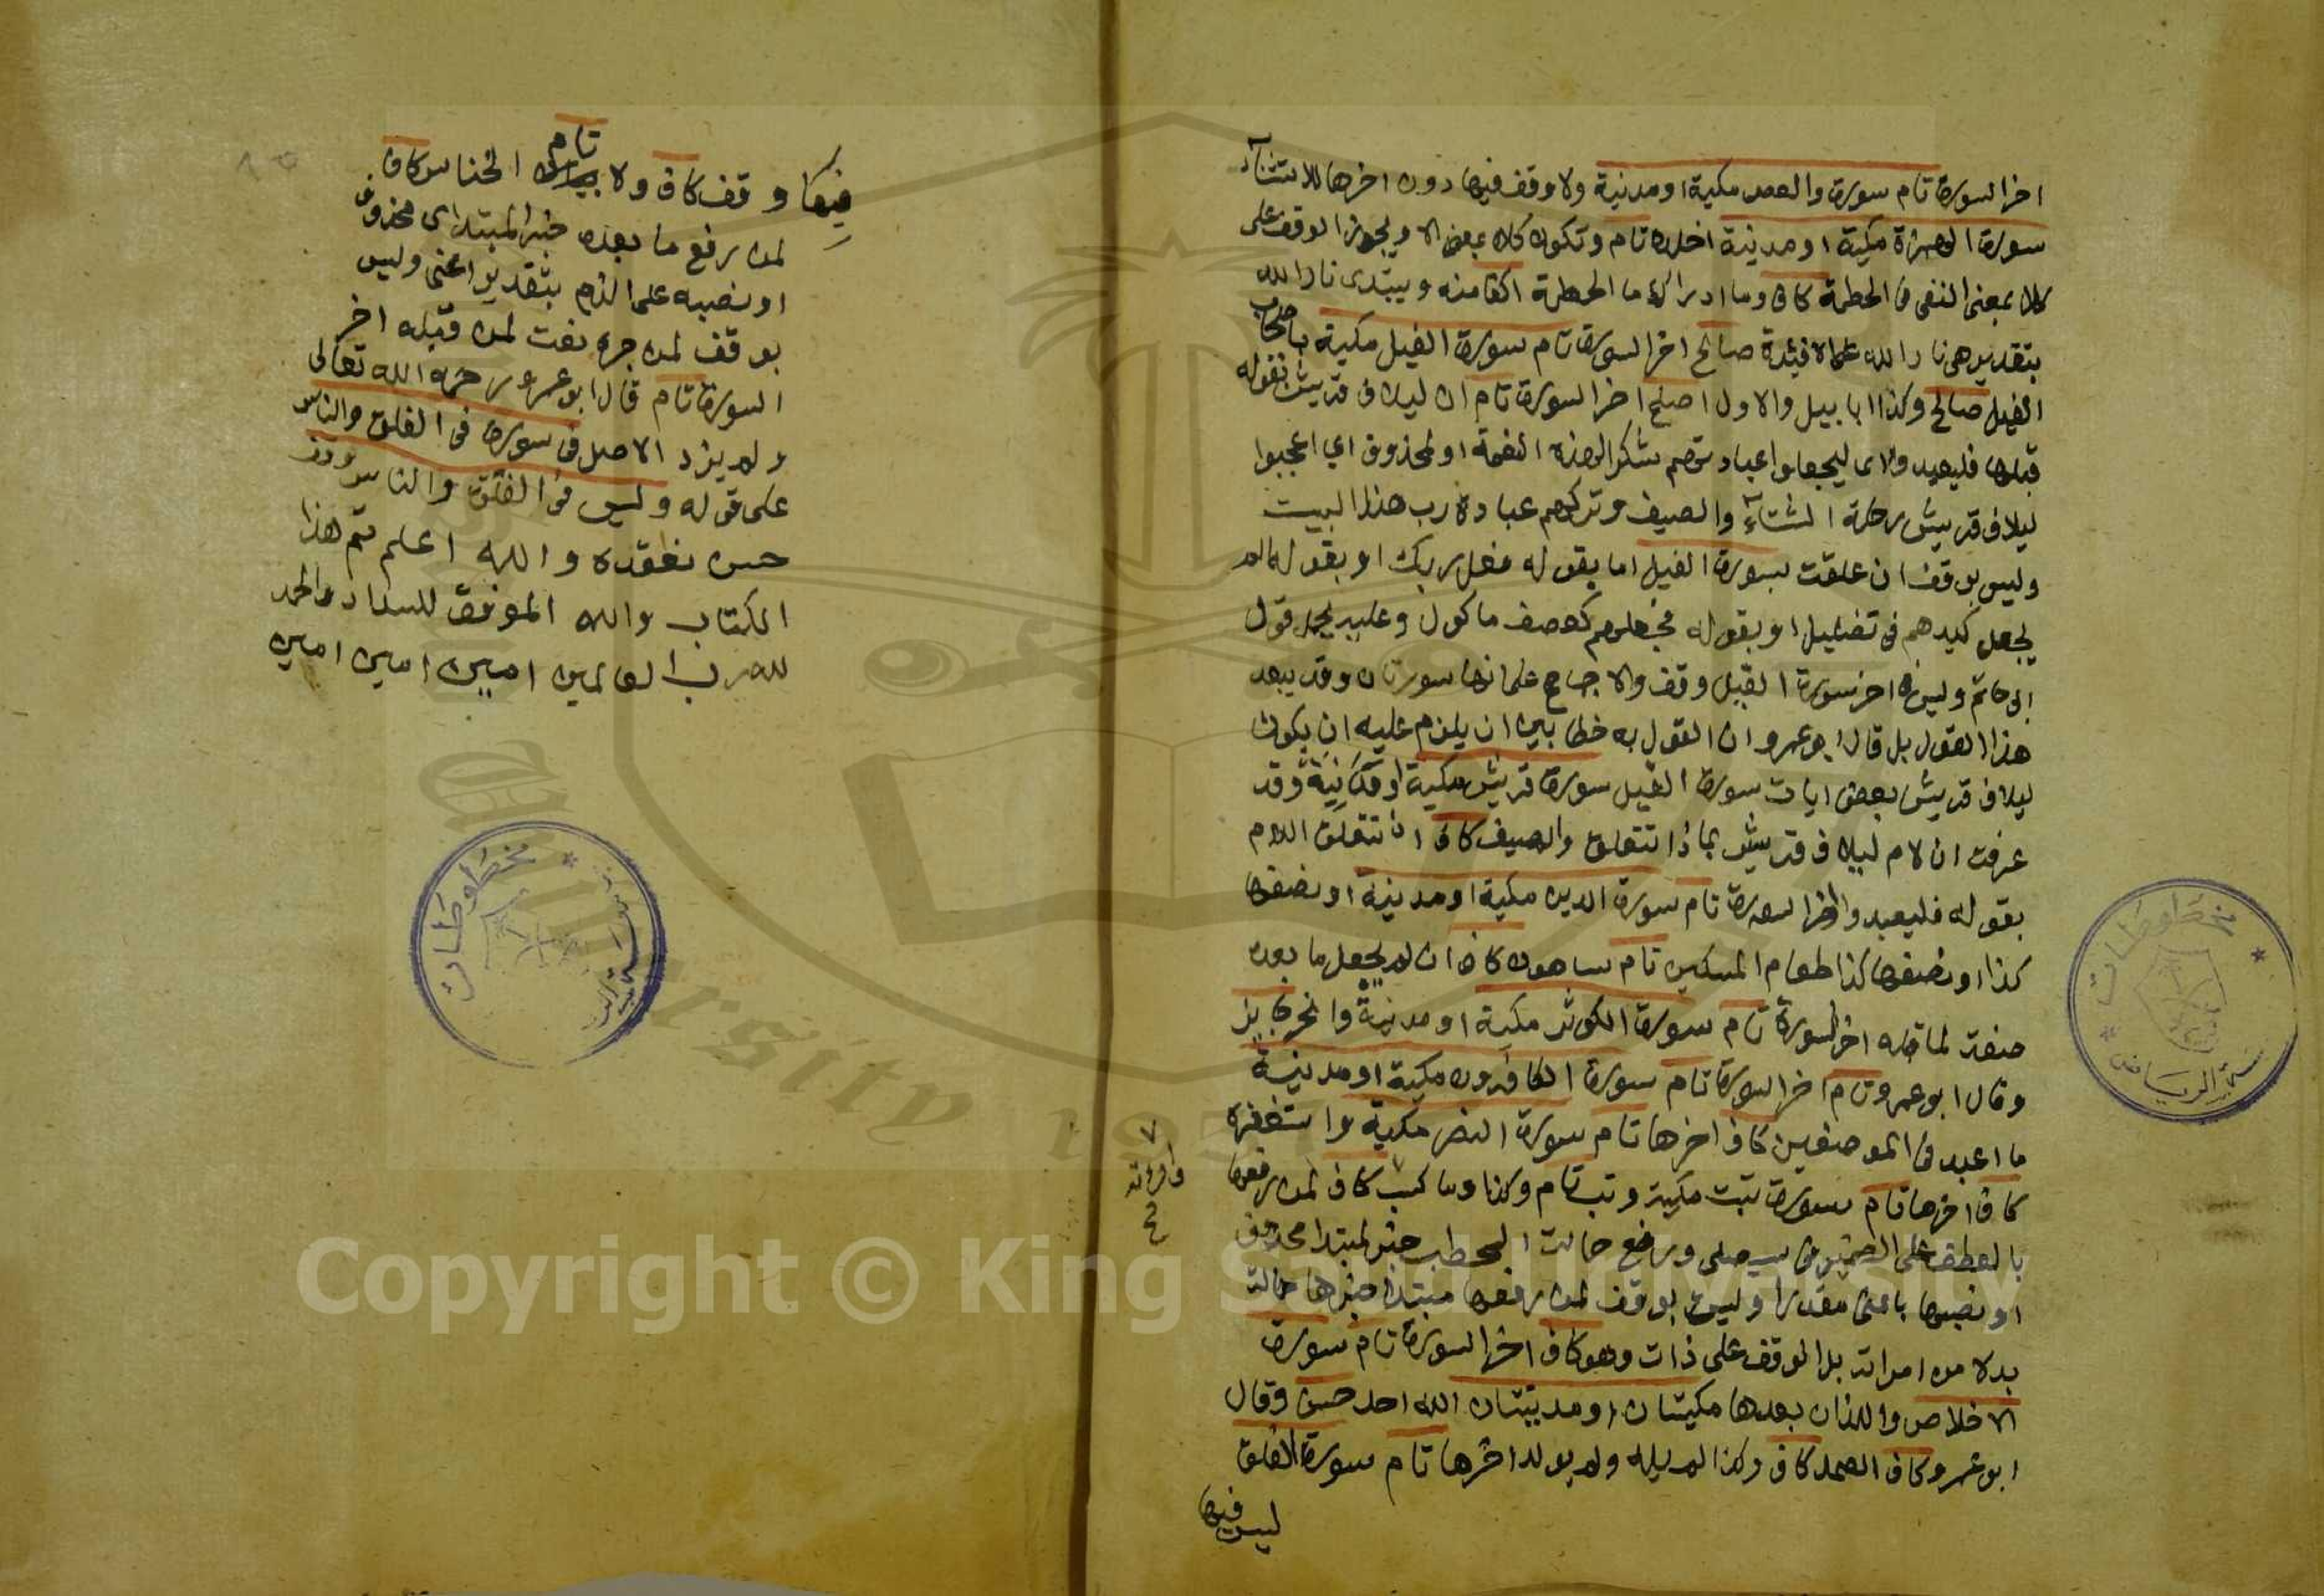 اخر السورة تام سورة والعصر مكية او مدنية ولا وقف فيها دون اخرها للاستثنآء
سورة الهمزة مكية او مدنية اخلده تام وتكون كلا بمعنى الا ويجوز الوقف على
كلا بمعنى النفى فى الحطمة كاف وما ادراك ما الحطمة اكفا منه ويبتدى نار الله
بتقدير هى نار الله على الافئدة صالح اخر السورة تام سورة الفيل مكية باصحاب
الفيل صالح وكذا ابابيل والاول اصلح اخر السورة تام ان ليلاف قريش بقوله
قبلها فليعبدوا اى ليجعلوا عبادتهم شكرا لهذه النعمة او لمحذوف اي اعجبوا
ليلاف قريش رحلة الشتآء والصيف وتركهم عبادة رب هذا البيت
وليس بوقف ان علقت بسورة الفيل اما بقوله فعل ربك او بقوله الم
يجعل كيدهم فى تضليل او بقوله فجعلهم كعصف ماكول وعليه يحمل قول
ابى حاتم وليس فى اخر سورة الفيل وقف والاجماع على انها سورتان وقد يبعد
هذا القول بل قال ابو عمرو ان القول به خطا بين ان يلزم عليه ان يكون
ليلاف قريش بعض ايات سورة الفيل سورة قريش مكية او مدنية وقد
عرفت ان لام ليلاف قريش بماذا تتعلق والصيف كاف ان تتعلق اللام
بقوله فليعبدوا اخر السورة تام سورة الدين مكية او مدنية او نصفها
كذا او نصفها كذا طعام المسكين تام ساهون كاف ان لم يجعل ما بعده
صفة لما قبله اخر السورة تام سورة الكوثر مكية او مدنية وانحر جايز
وقال ابو عمرو تام اخر السورة تام سورة الكافرون مكية او مدنية
ما اعبد فى الموضعين كاف اخرها تام سورة النصر مكية واستغفره
كاف اخرها تام سورة تبت مكية وتب تام وكذا وما كسب كاف لمن رفعها
بالعطف على الضمير فى سيصلى ورفع حمالت الحطب خبر المبتدا محذوف
او نصبها باعنى مقدرا وليس بوقف لمن رفعها مبتدا خبرها حمالت
بدلا من امراته بل الوقف على ذات وهو كاف اخر السورة تام سورة
الاخلاص واللتان بعدها مكيتان او مدنيتان الله احد حسن وقال
ابو عمرو كاف الصمد كاف وكذا لم يلد ولم يولد اخرها تام سورة الفلق
ليس فيها
وامراته
فيها وقف كاف ولا تام الخناس كاف
لمن رفع ما بعده خبر المبتداى محذوف
او نصبه على الذم بتقدير اعنى وليس
بوقف لمن جره نعت لمن قبله اخر
السورة تام قال ابو عمرو رحمه الله تعالى
ولم يزد الاصل فى سورة فى الفلق والناس
على قوله وليس فى الفلق والناس وقف
حسن نعقده والله اعلم تم هذا
الكتاب والله الموفق للسداد والحمد
لله رب العالمين امين امين امين
مخطوطات
مخطوطات
Copyright © King Saud University
University 1957